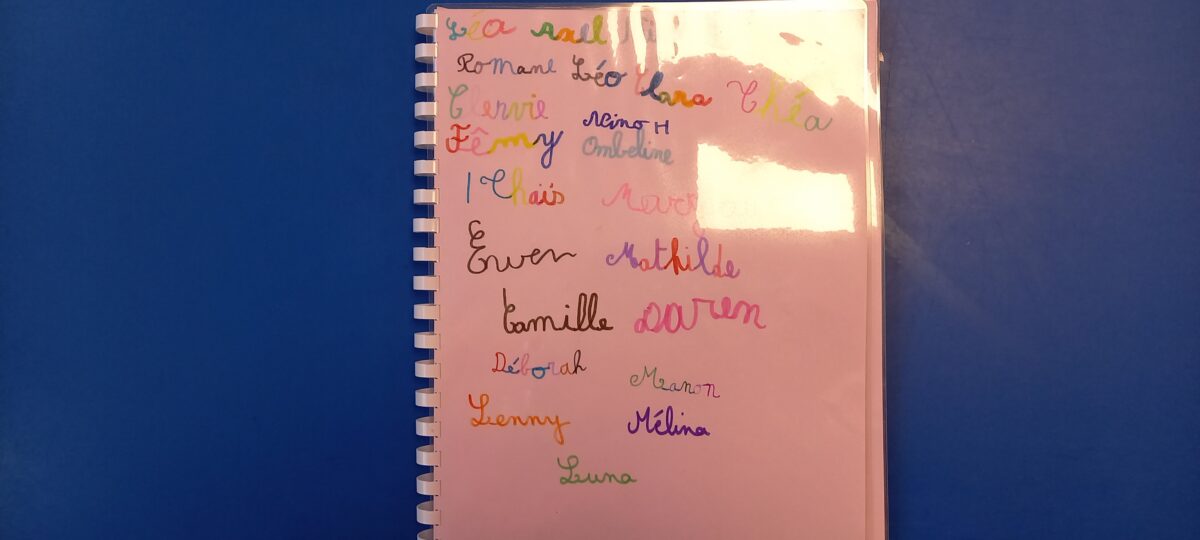 Léa Axel
Romane Léo Clara Théa
Clervie
Nino H
Fêmy Ombeline
Thaïs
Ewen Mathilde
Camille Daren
Déborah
Manon
Lenny Mélina
Luna